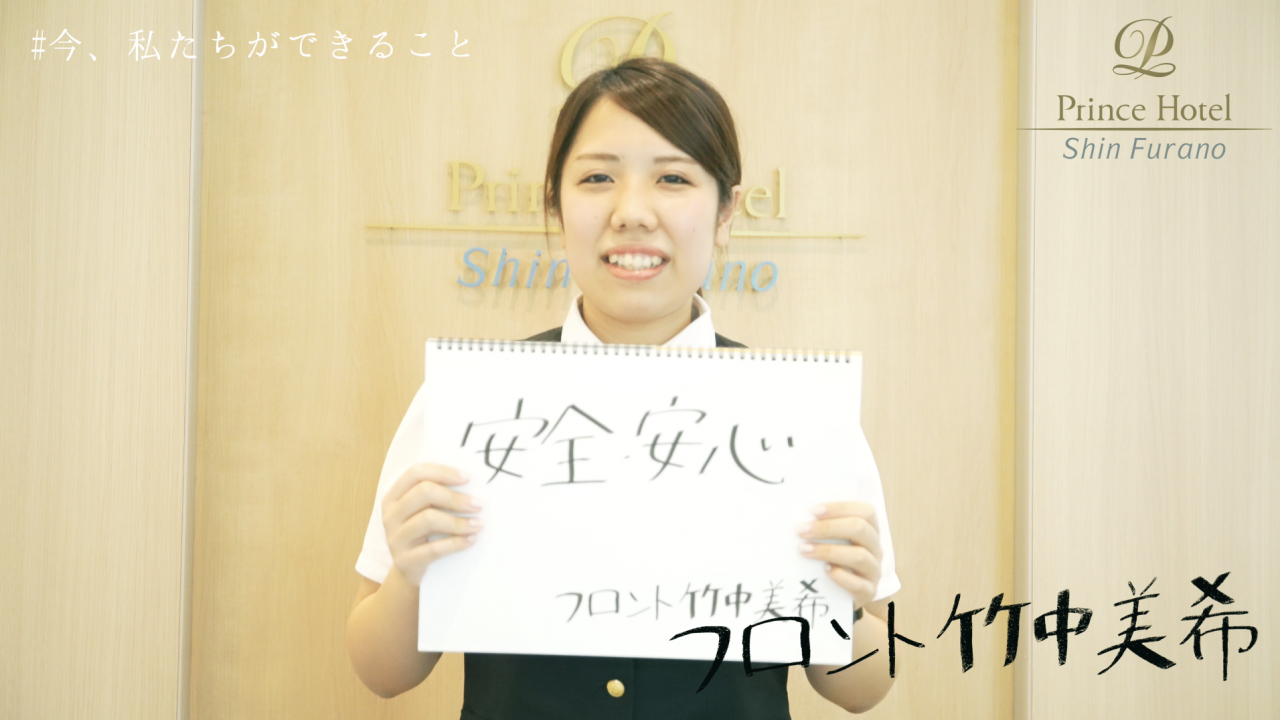 #今、私たちができること
Prince Hotel
Shin Furano
安全・安心
フロント 竹中美希
フロント 竹中美希